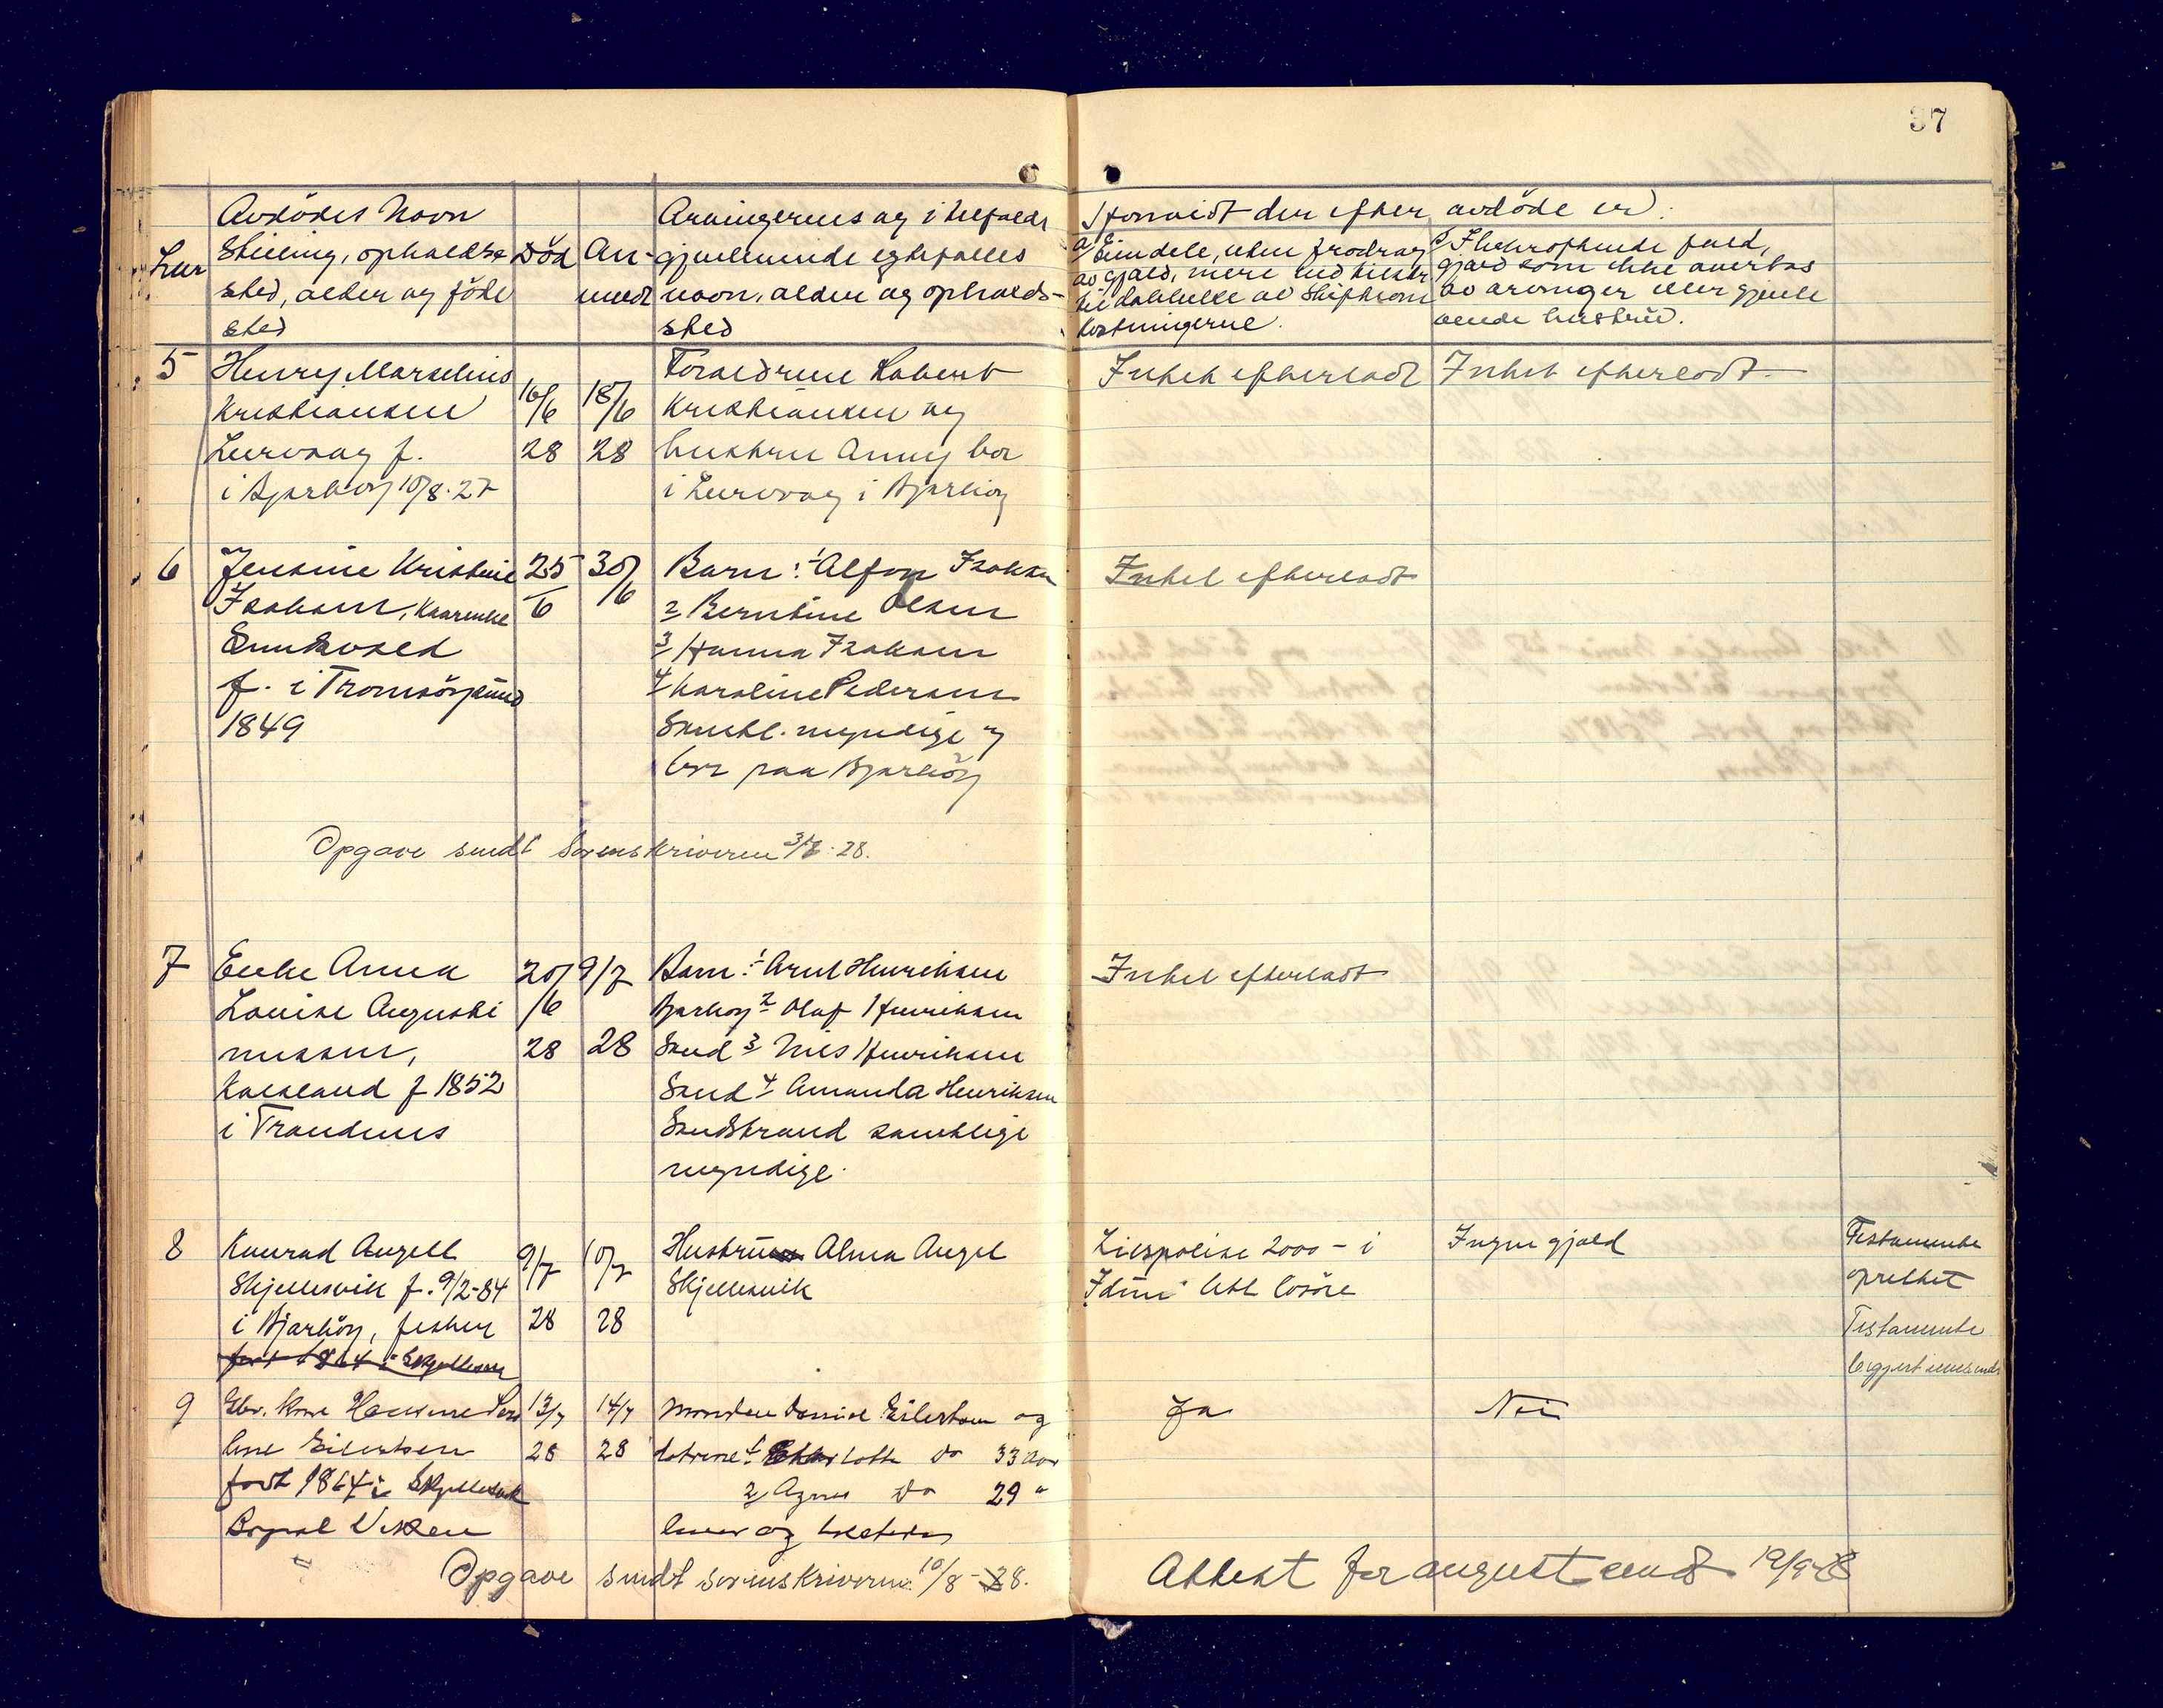 37
Avdödes Navn
Stilling, opholds-
sted, alder og föde
sted
Död
An-
meldt
Arvingernes og i tilfælde
gjenlevende egtefælles
navn, alder og opholds-
sted
Hvorvidt der efter avdöde er:
a/ Eiendele, uten fradrag
av gjæld, mere end tilstr.
til dækkelse av skifteom
kostningerne.
b/ I bekræftende fald,
gjæld som ikke overtas
av arvinger eller gjenle
vende hustru.
5
Henry Marselius
Kristiansen
Leirvaag f.
i Bjarköy 10/8.27
16/6
28
18/6
28
Forældrene
Kristiansen og
hustru Anny bor
i Leirvaag i Bjarköy
Intet efterladt
Intet efterladt
6
Jensine Kristine
Isaksen,
f. i Tromsöysund
1849
25
6
30/6
Barn: 1 Alfon Isaksen
2 Berntine Olsen
3 Hanna Isaksen
4 Karoline Pedersen
Samtl. myndige og
bor paa Bjarköy
Intet efterladt
Opgave sendt Sorenskriveren 3/7.28.
7
Enke Anna
Louise Augusti
nussen,
f 1852
i Trondenes
20/6
28
9/7
28
Barn: 1 Arnt Henriksen
Bjarköy 2 Olaf Henriksen
Sand 3 Nils Henriksen
Sand 4 Amanda Henriksen
Sandstrand samtlige
myndige.
Intet efterladt
8
Konrad Angell
Skjellesvik f. 9/2-84
i Bjarköy, fisker
födt 1864 i Skjellesvik
9/7
28
10/7
28
Hustru Alma Angel
Skjellesvik
Livspolise 2000 - i
Idun litt lösöre
Ingen gjæld
Testamente
oprettet
Testamente
9
Eilertsen
födt 1864 i Skjellesvik
Bopæl Vikken
13/7
28
14/7
28
Manden Eilertsen og
döttrene 1 Charlotte do 33 aar
2 Agnes do 29 "
Ja
Nei
Opgave sendt sorenskriveren 10/8-28.
Attest for august sendt 19/9-28